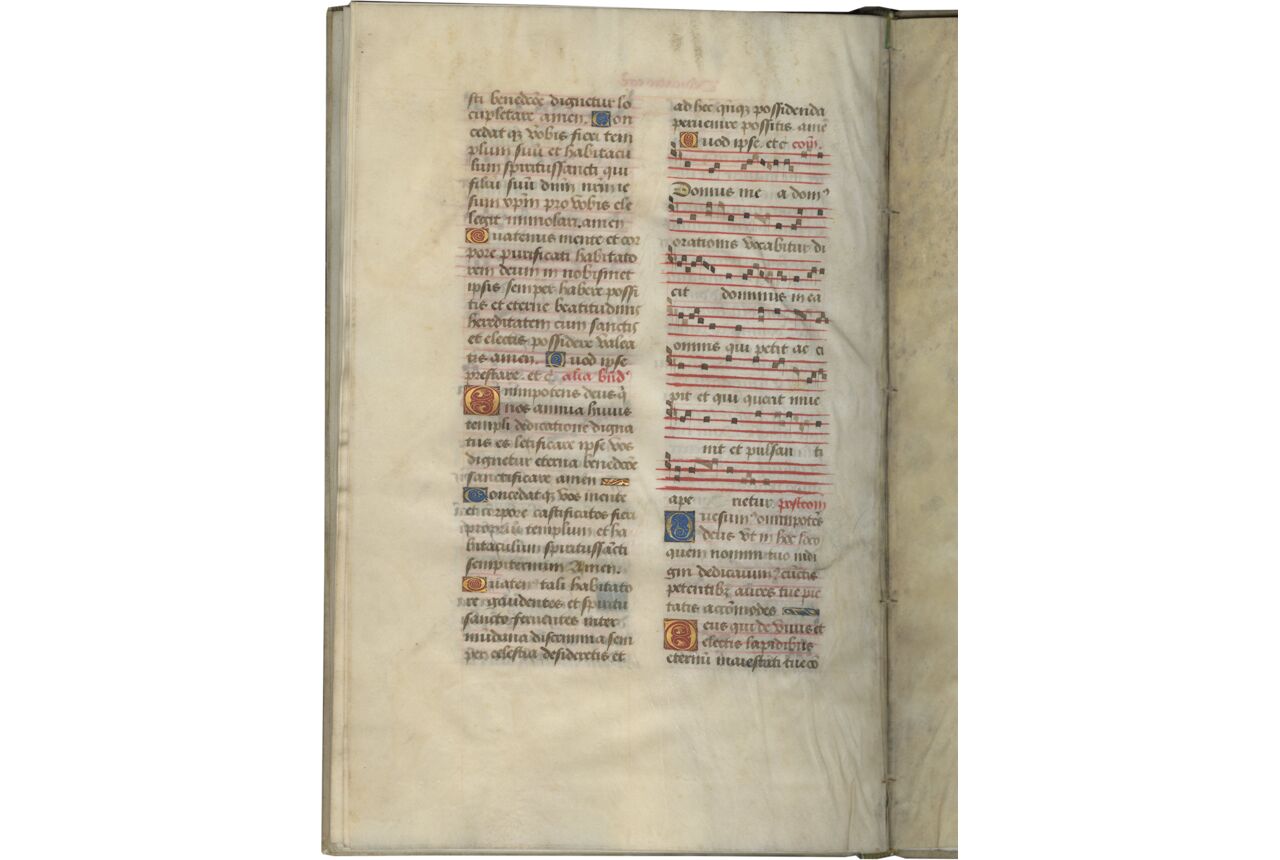 sti benedicc̄oe dignetur lo
cupletare amen. Con
cedat qꝫ vobis fieri tem
plum suū et habitacu
lum spiritussancti qui
filiū suū dn̄m nr̄m ie
sum xp̄m pro vobis ele
legit immolari. amen
Quatenus mente et cor
pore purificati habitato
rem deum in nobismet
ipsis semper habere possi
tis et eterne beatitudinis
hereditatem cum sanctis
et electis possidere valea
tis amen. Quod ipse
prestare. et c̄ alia bn̄d᷒
Omnipotens deus q̄
nos annua huius
templi dedicatione digna
tus es letificare ipse vos
dignetur eterna benedicc̄oe
sanctificare amen
Concedatqꝫ vos mente
et corpore castificatos fieri
proprium templum et ha
bitaculum spiritussācti
sempiternum Amen.
Quaten᷒ tali habitato
re gaudentes et spiritu
sancto feruentes inter
mūdana discrimina sem
per celestia desideretis et
ad hec qn̄qꝫ possidenda
peruenire possitis amē
Quod ipse. et c̄ com̄.
Domus me a dom᷒
orationis vocabitur di
cit dominus in ea
omnis qui petit ac ci
pit et qui querit inue
nit et pulsan ti
ape rietur. postcom̄
Quesum᷒ omnipotēs
deus vt in hoc loco
quem nomini tuo indi
gni dedicauim᷒ cūctis
petentibꝫ aures tue pie
tatis accōmodes
Deus qui de viuis et
electis lapidibus
eternū maiestati tue cō